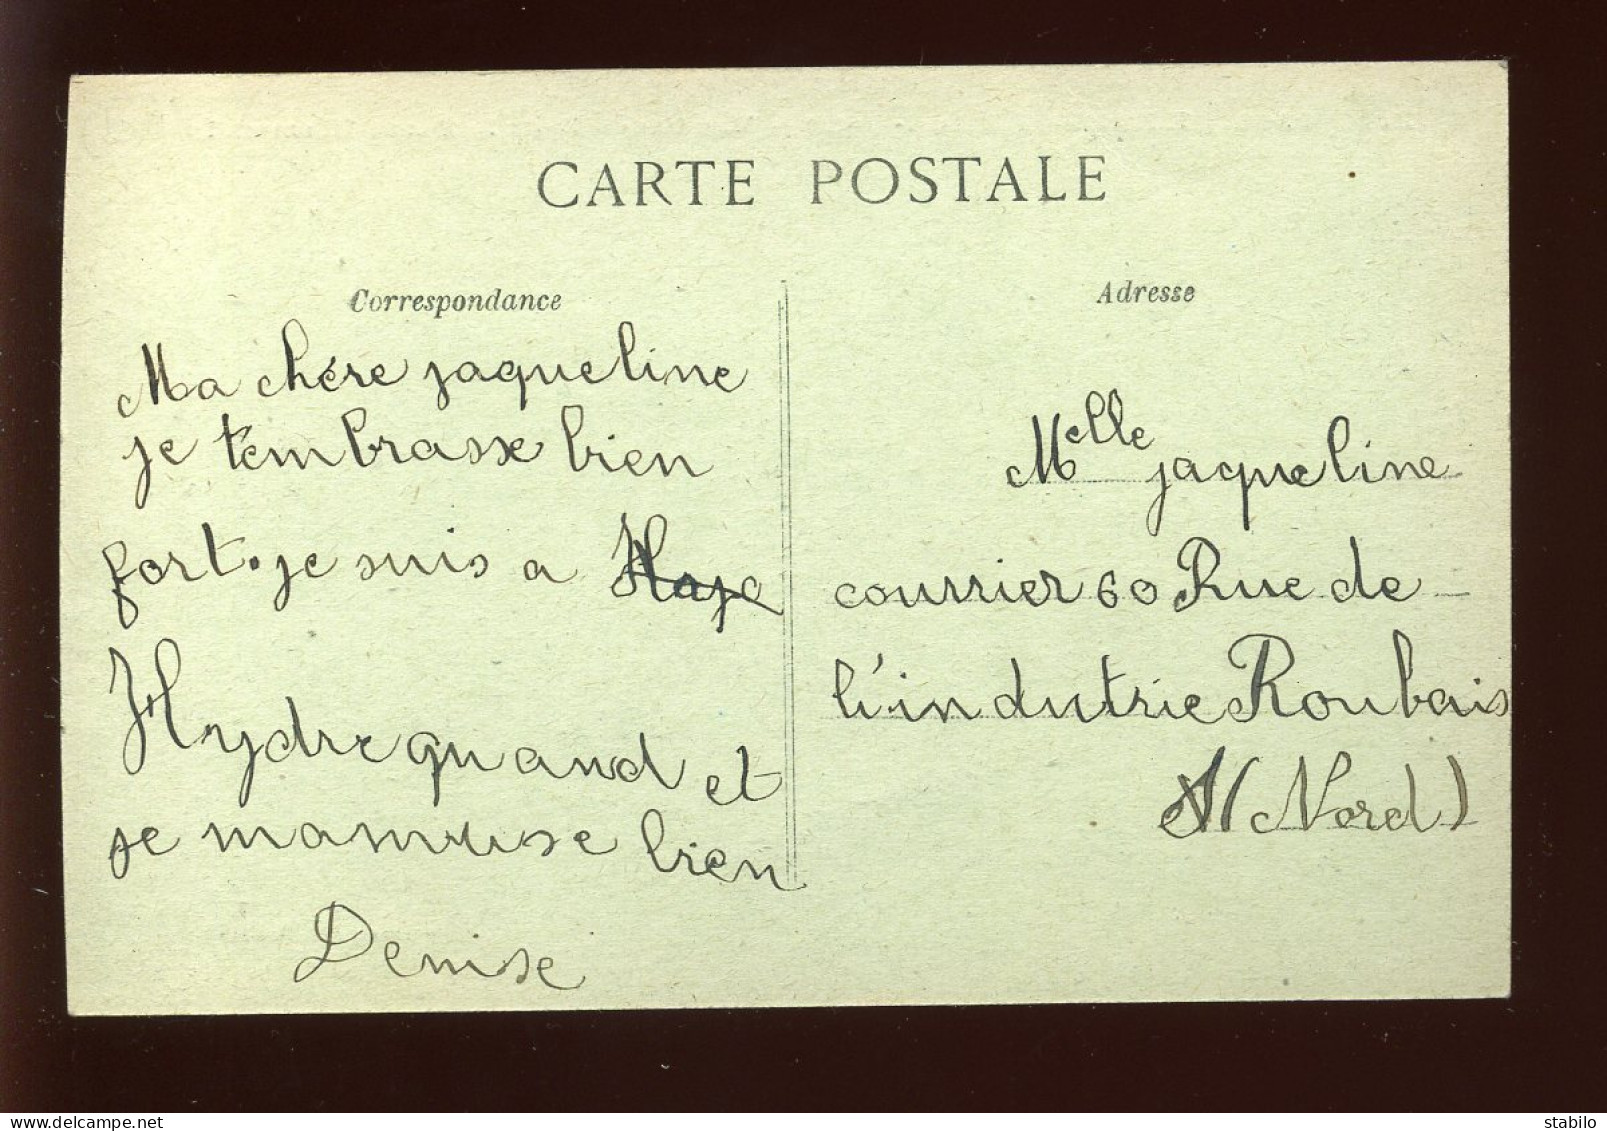 CARTE POSTALE
Correspondance
Ma chére jaqueline
je t'embrasse bien
fort. je suis a
Hydre quand et
je mamuse bien
Denise
Adresse
Melle jaqueline
courrier 60 Rue de
l'indutrie Roubais
(Nord)
delcampe.net
stabilo